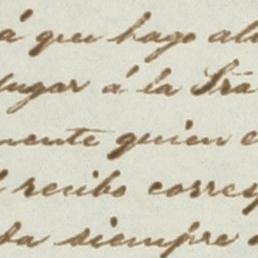 á que hago al
lugar á la Sra
mente quien
recibo corres
siempre